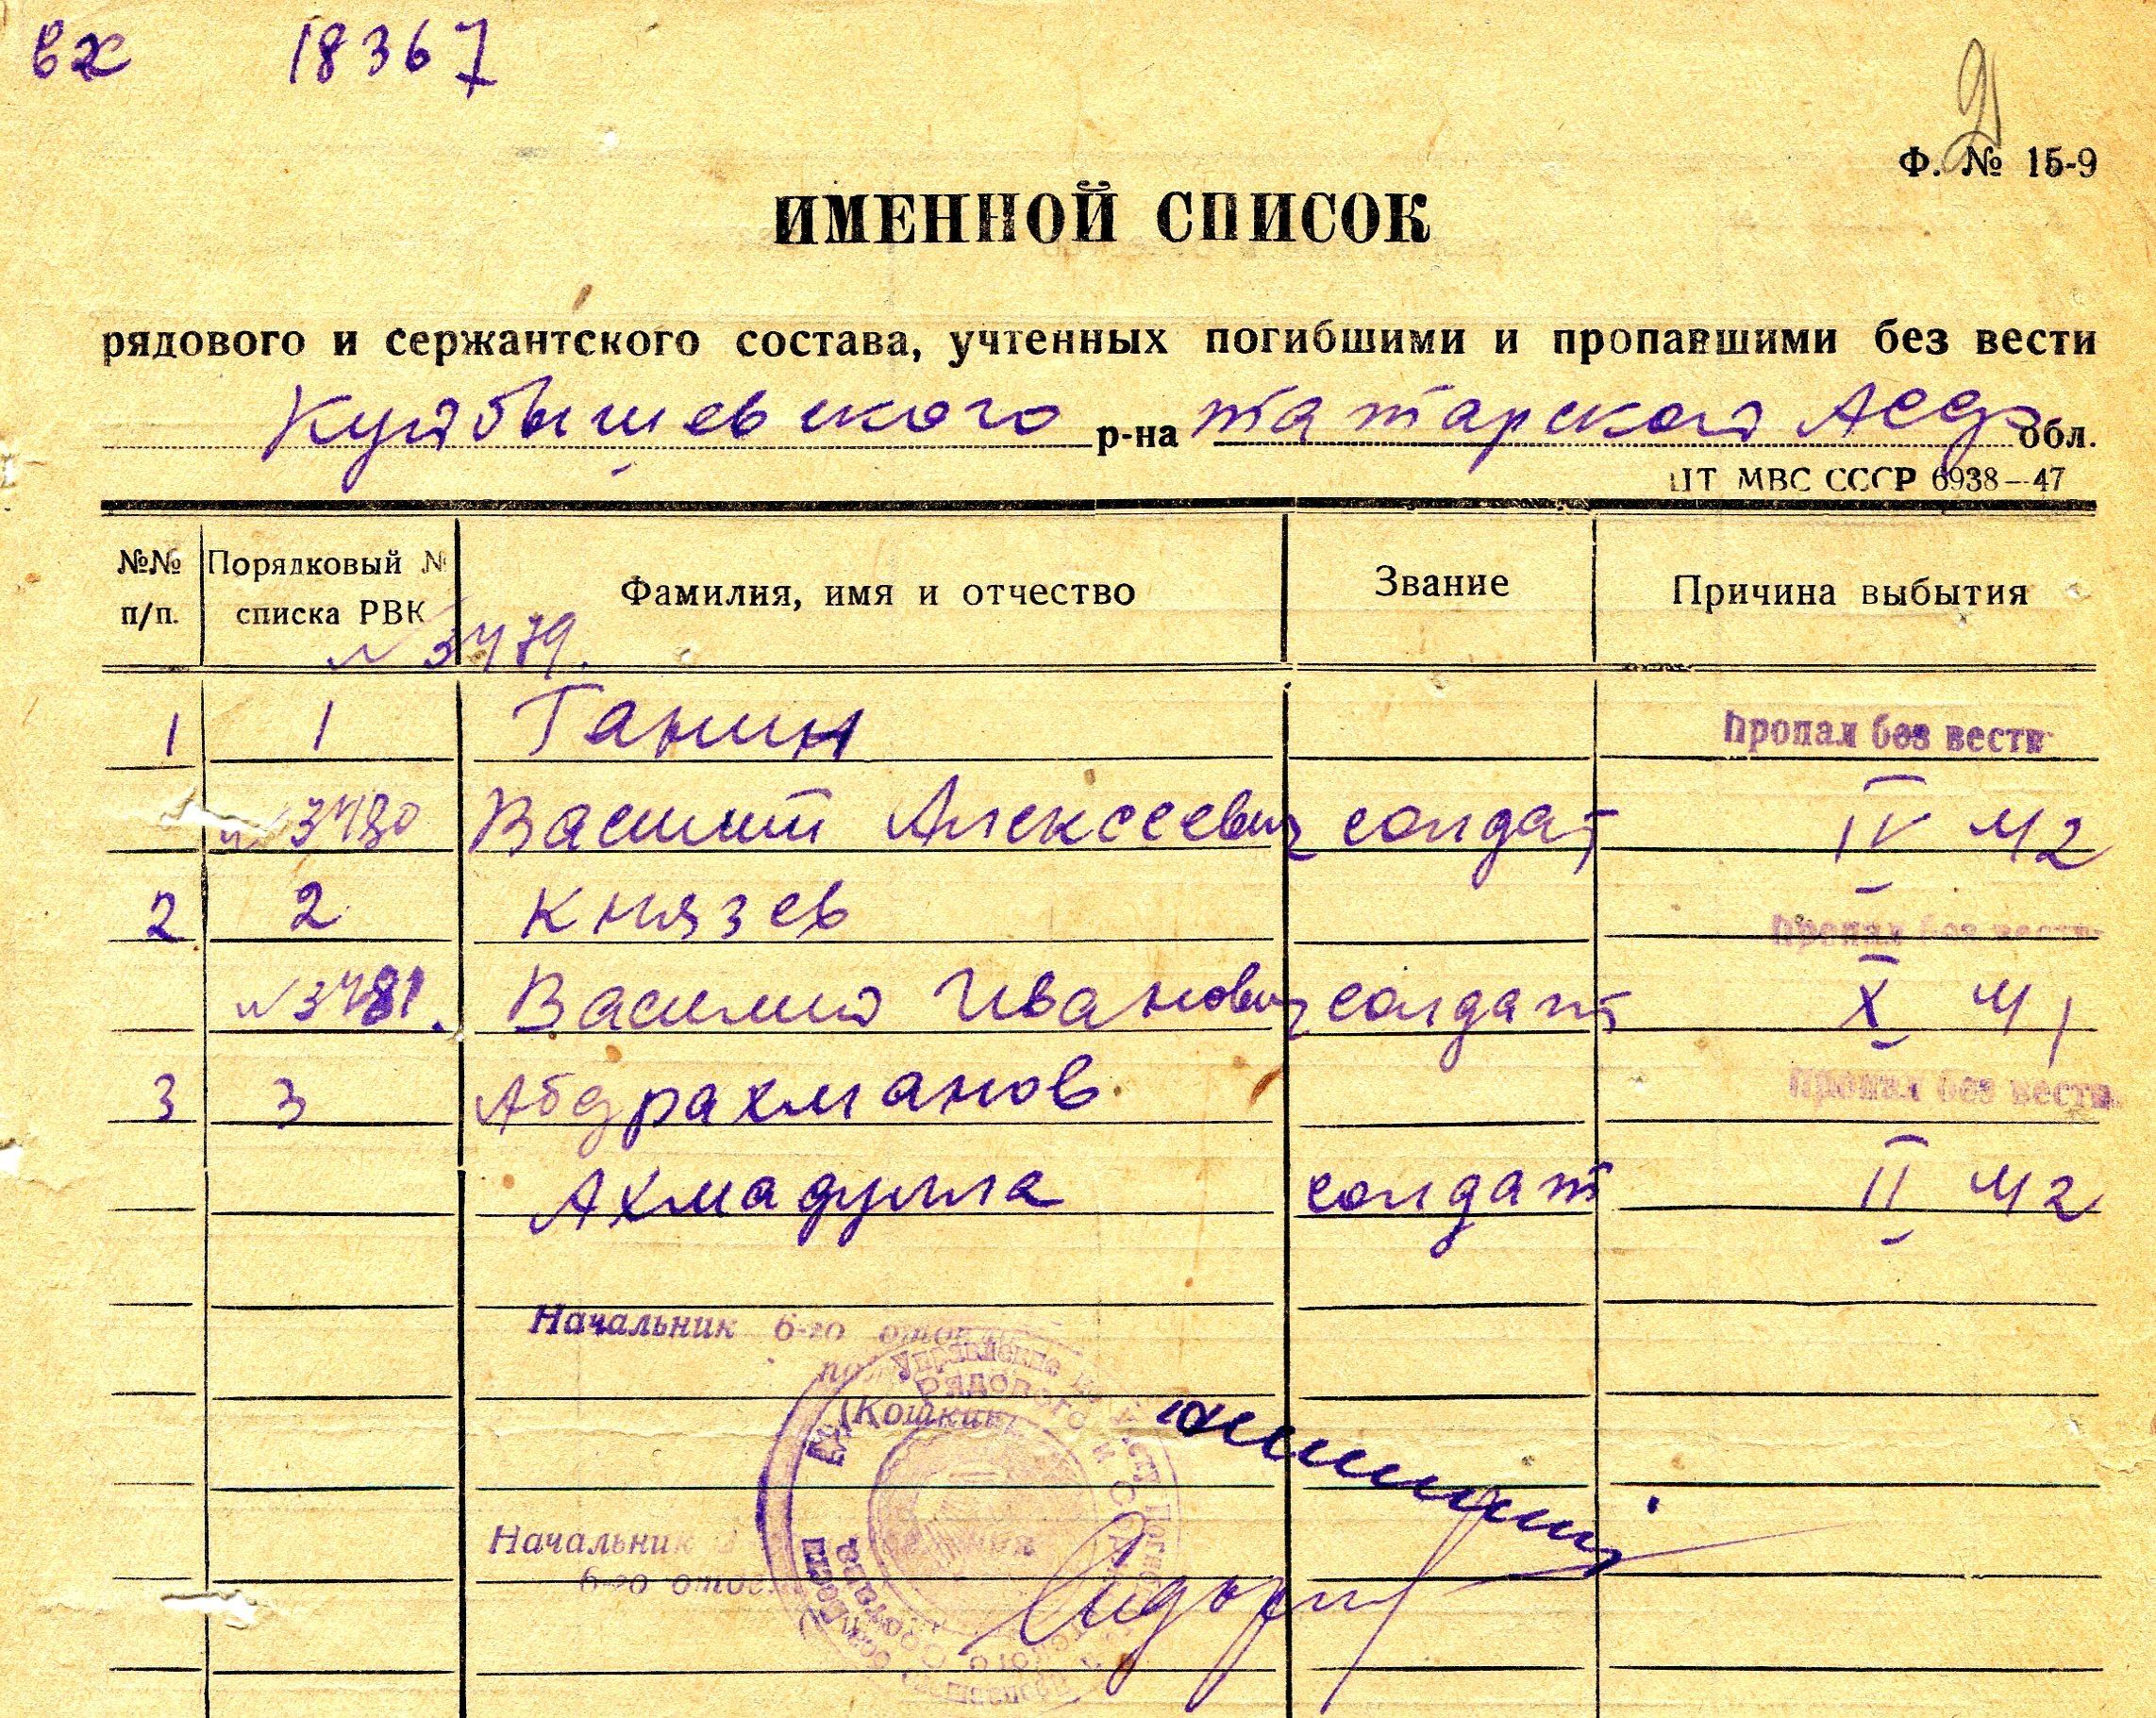 вх 18367
Ф. № 15-9
ИМЕННОЙ СПИСОК
рядового и сержантского состава, учтенных погибшими и пропавшими без вести
Куйбышевского р-на Татарской АССР обл.
ЦТ МВС СССР 6938—47
№№ п/п. Порядковый № списка РВК Фамилия, имя и отчество Звание Причина выбытия
№ 3479.
1 1 Ганин Пропал без вести
№ 3480 Василий Алексеевич солдат IV 42
2 2 Князев Пропал без вести
№ 3481. Василий Иванович солдат X 41
3 3 Абдрахманов Пропал без вести
Ахмадулла солдат II 42
Начальник 6-го
Управление
Рядового и
(Кошкин
Начальник
6-го